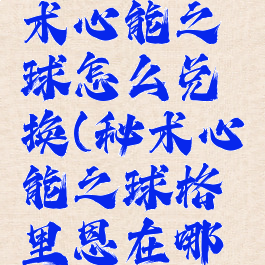 术心能之
球怎么兑
换(秘术心
能之球格
里恩在哪